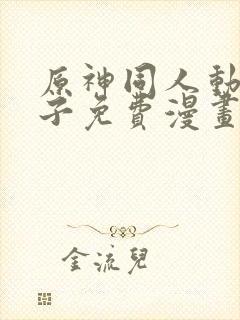 原神同人動
子免費漫畫
金流兒